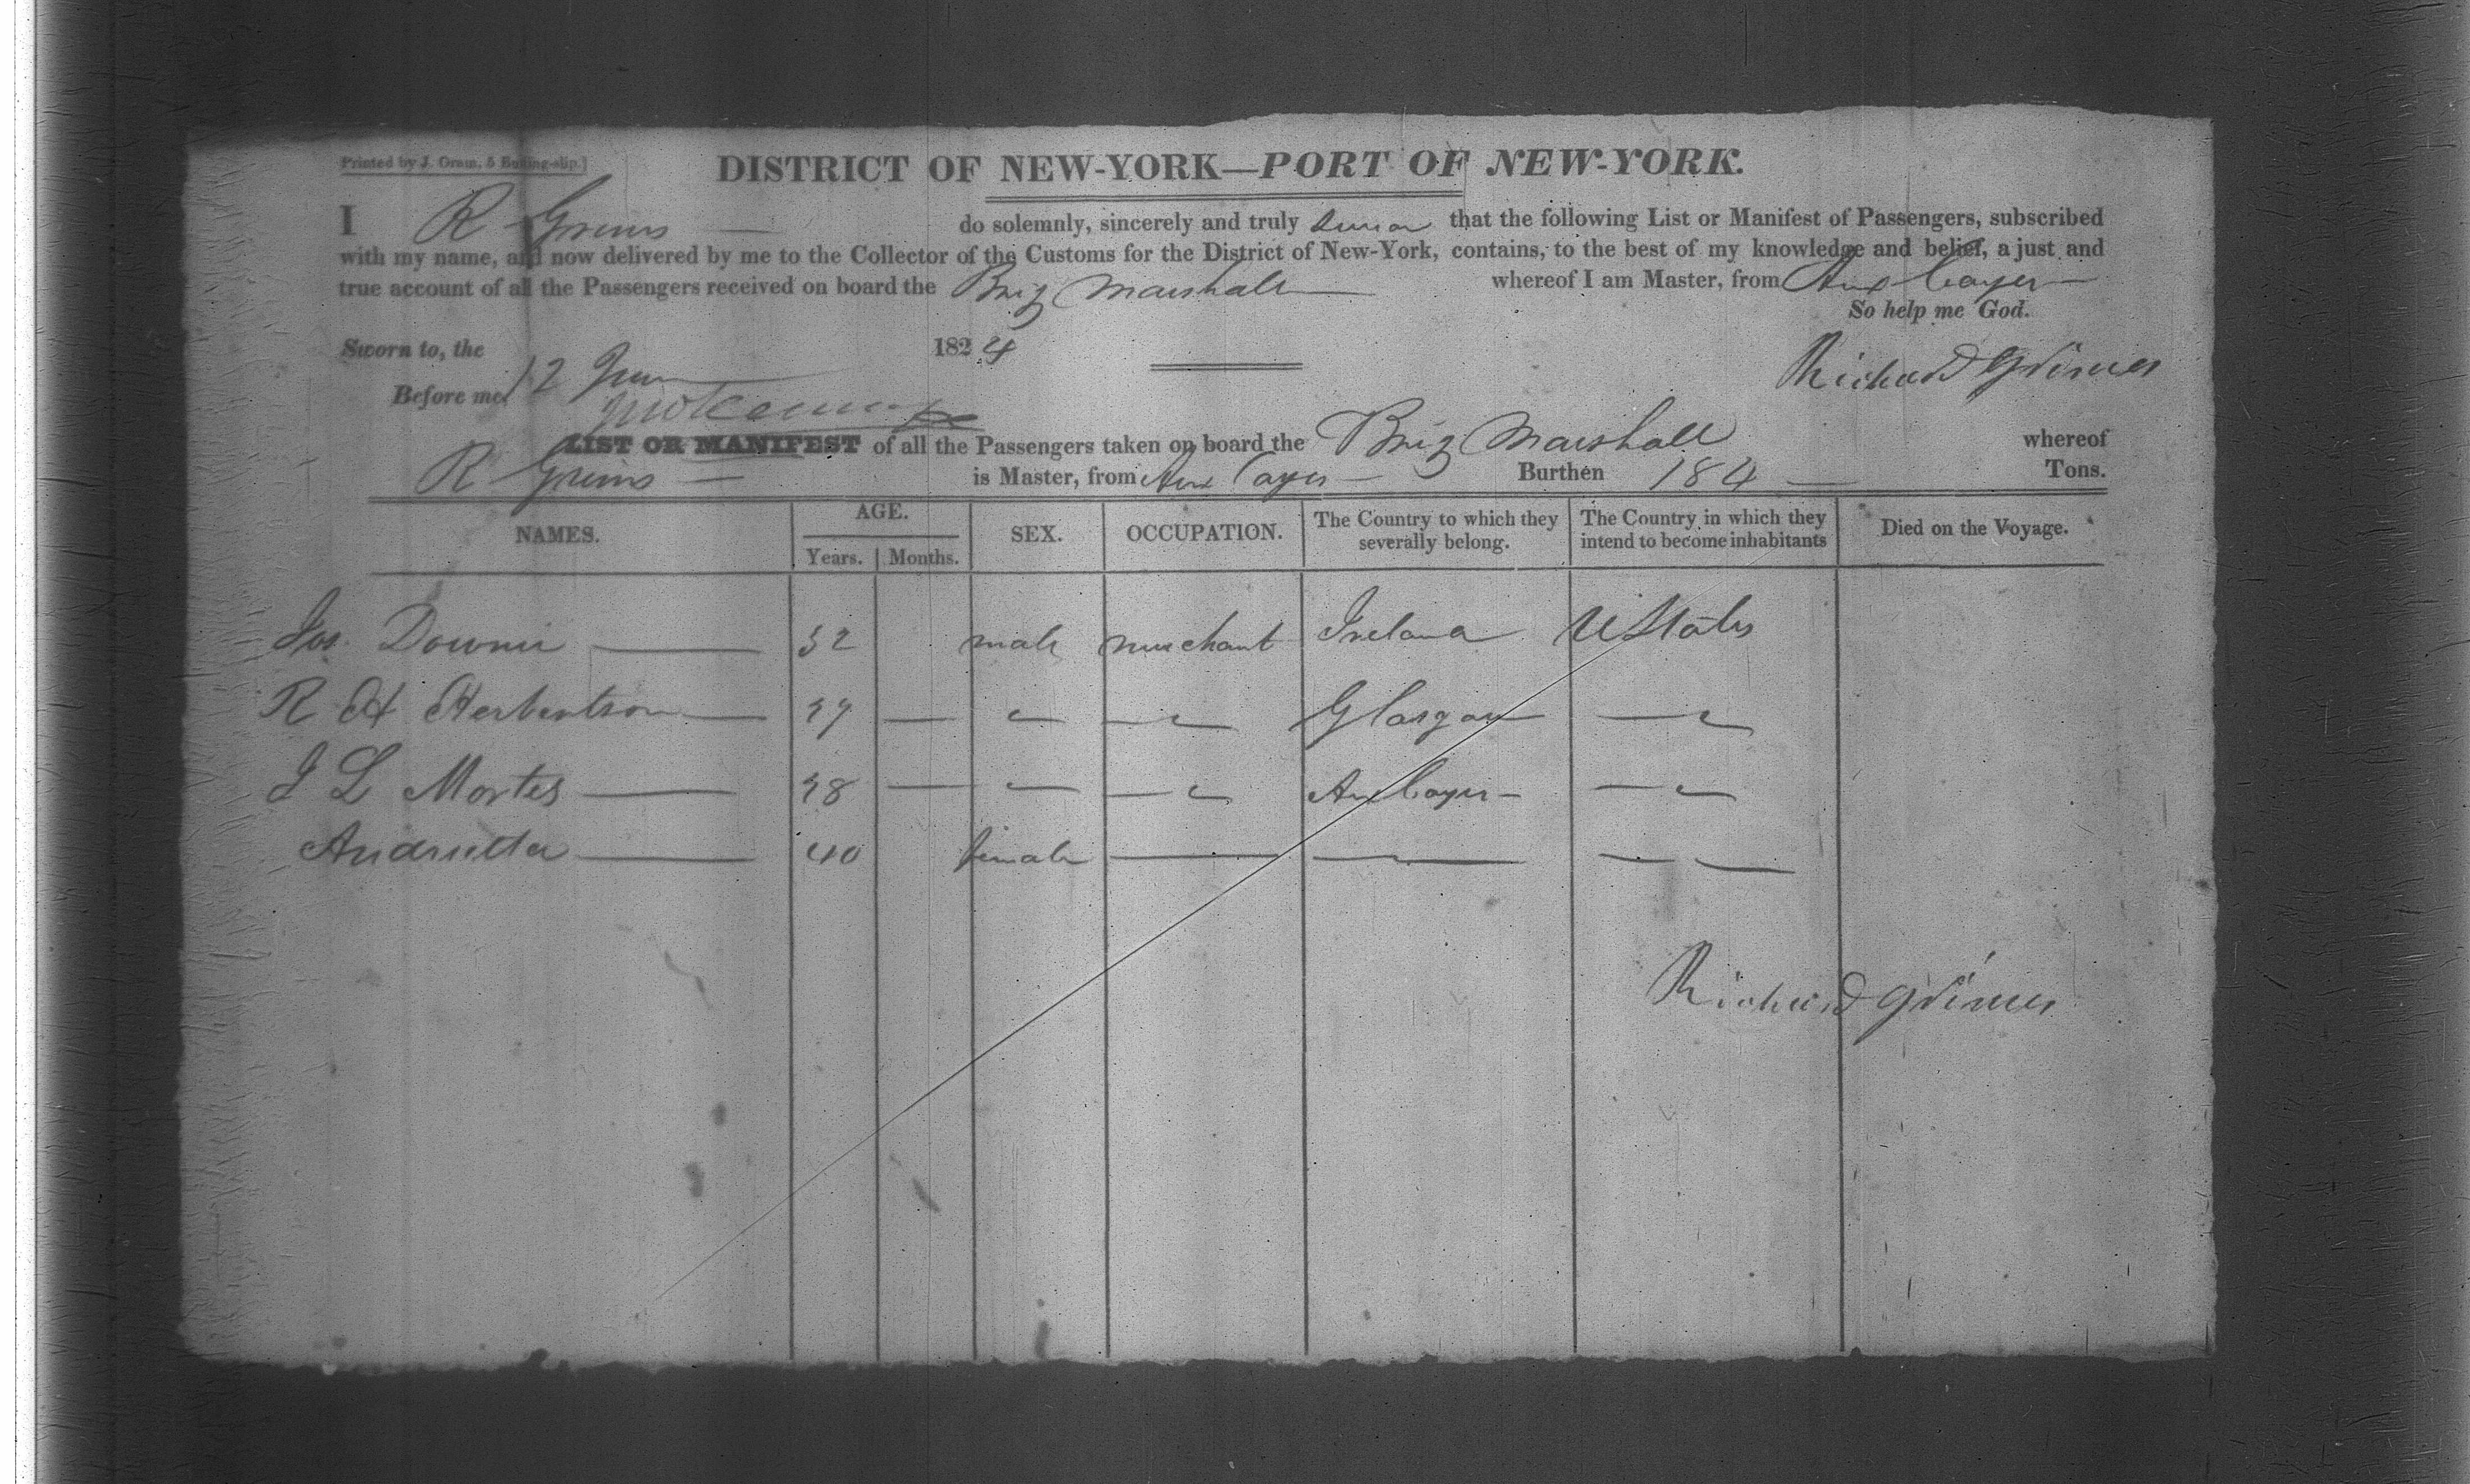 Printed by J. Gram, 5 Burling-slip.]
DISTRICT OF NEW-YORK—PORT OF NEW-YORK.
I R Grims do solemnly, sincerely and truly swear that the following List or Manifest of Passengers, subscribed
with my name, and now delivered by me to the Collector of the Customs for the District of New-York, contains, to the best of my knowledge and belief, a just and
true account of all the Passengers received on board the Brig Marshall whereof I am Master, from Aux Cayes
So help me God.
Sworn to, the 12 June 1824
Richard Grimes
Before me,
LIST OR MANIFEST of all the Passengers taken on board the Brig Marshall whereof
R Grims is Master, from Aux Cayes Burthen 184 Tons.
NAMES. AGE. Years. Months. SEX. OCCUPATION. The Country to which they severally belong. The Country in which they intend to become inhabitants Died on the Voyage.
Jos. Downie 32 male merchant Ireland U States
R H Herbertson 39 Glasgow
J L Mortes 38 Aux Cayes
40 female
Richard Grimes